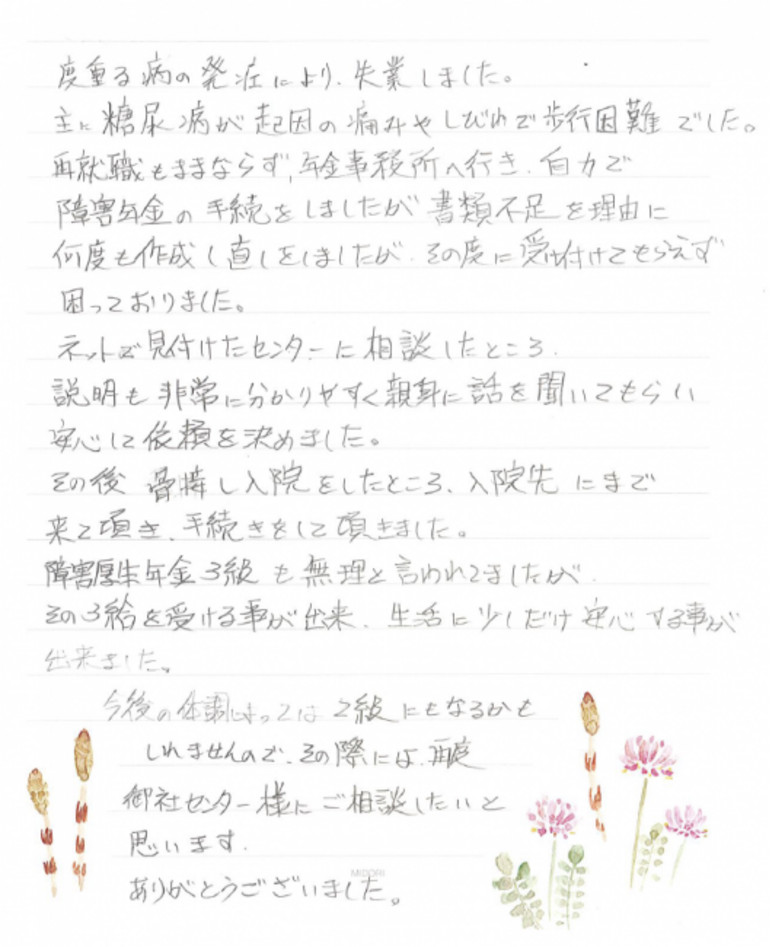 度重る病の発症により、失業しました。
主に糖尿病が起因の痛みやしびれで歩行困難でした。
再就職もままならず、年金事務所へ行き、自力で
障害年金の手続をしましたが書類不足を理由に
何度も作成し直しをしましたが、その度に受け付けてもらえず
困っておりました。
ネットで見付けたセンターに相談したところ、
説明も非常に分かりやすく親身に話を聞いてもらい
安心して依頼を決めました。
その後 骨折し入院をしたところ、入院先にまで
来て頂き、手続きをして頂きました。
障害厚生年金3級も無理と言われてましたが、
その3給を受ける事が出来、生活に少しだけ安心する事が
出来ました。
今後の体調によっては2級にもなるかも
しれませんので、その際には、再度
御社センター様にご相談したいと
思います。
MIDORI
ありがとうございました。